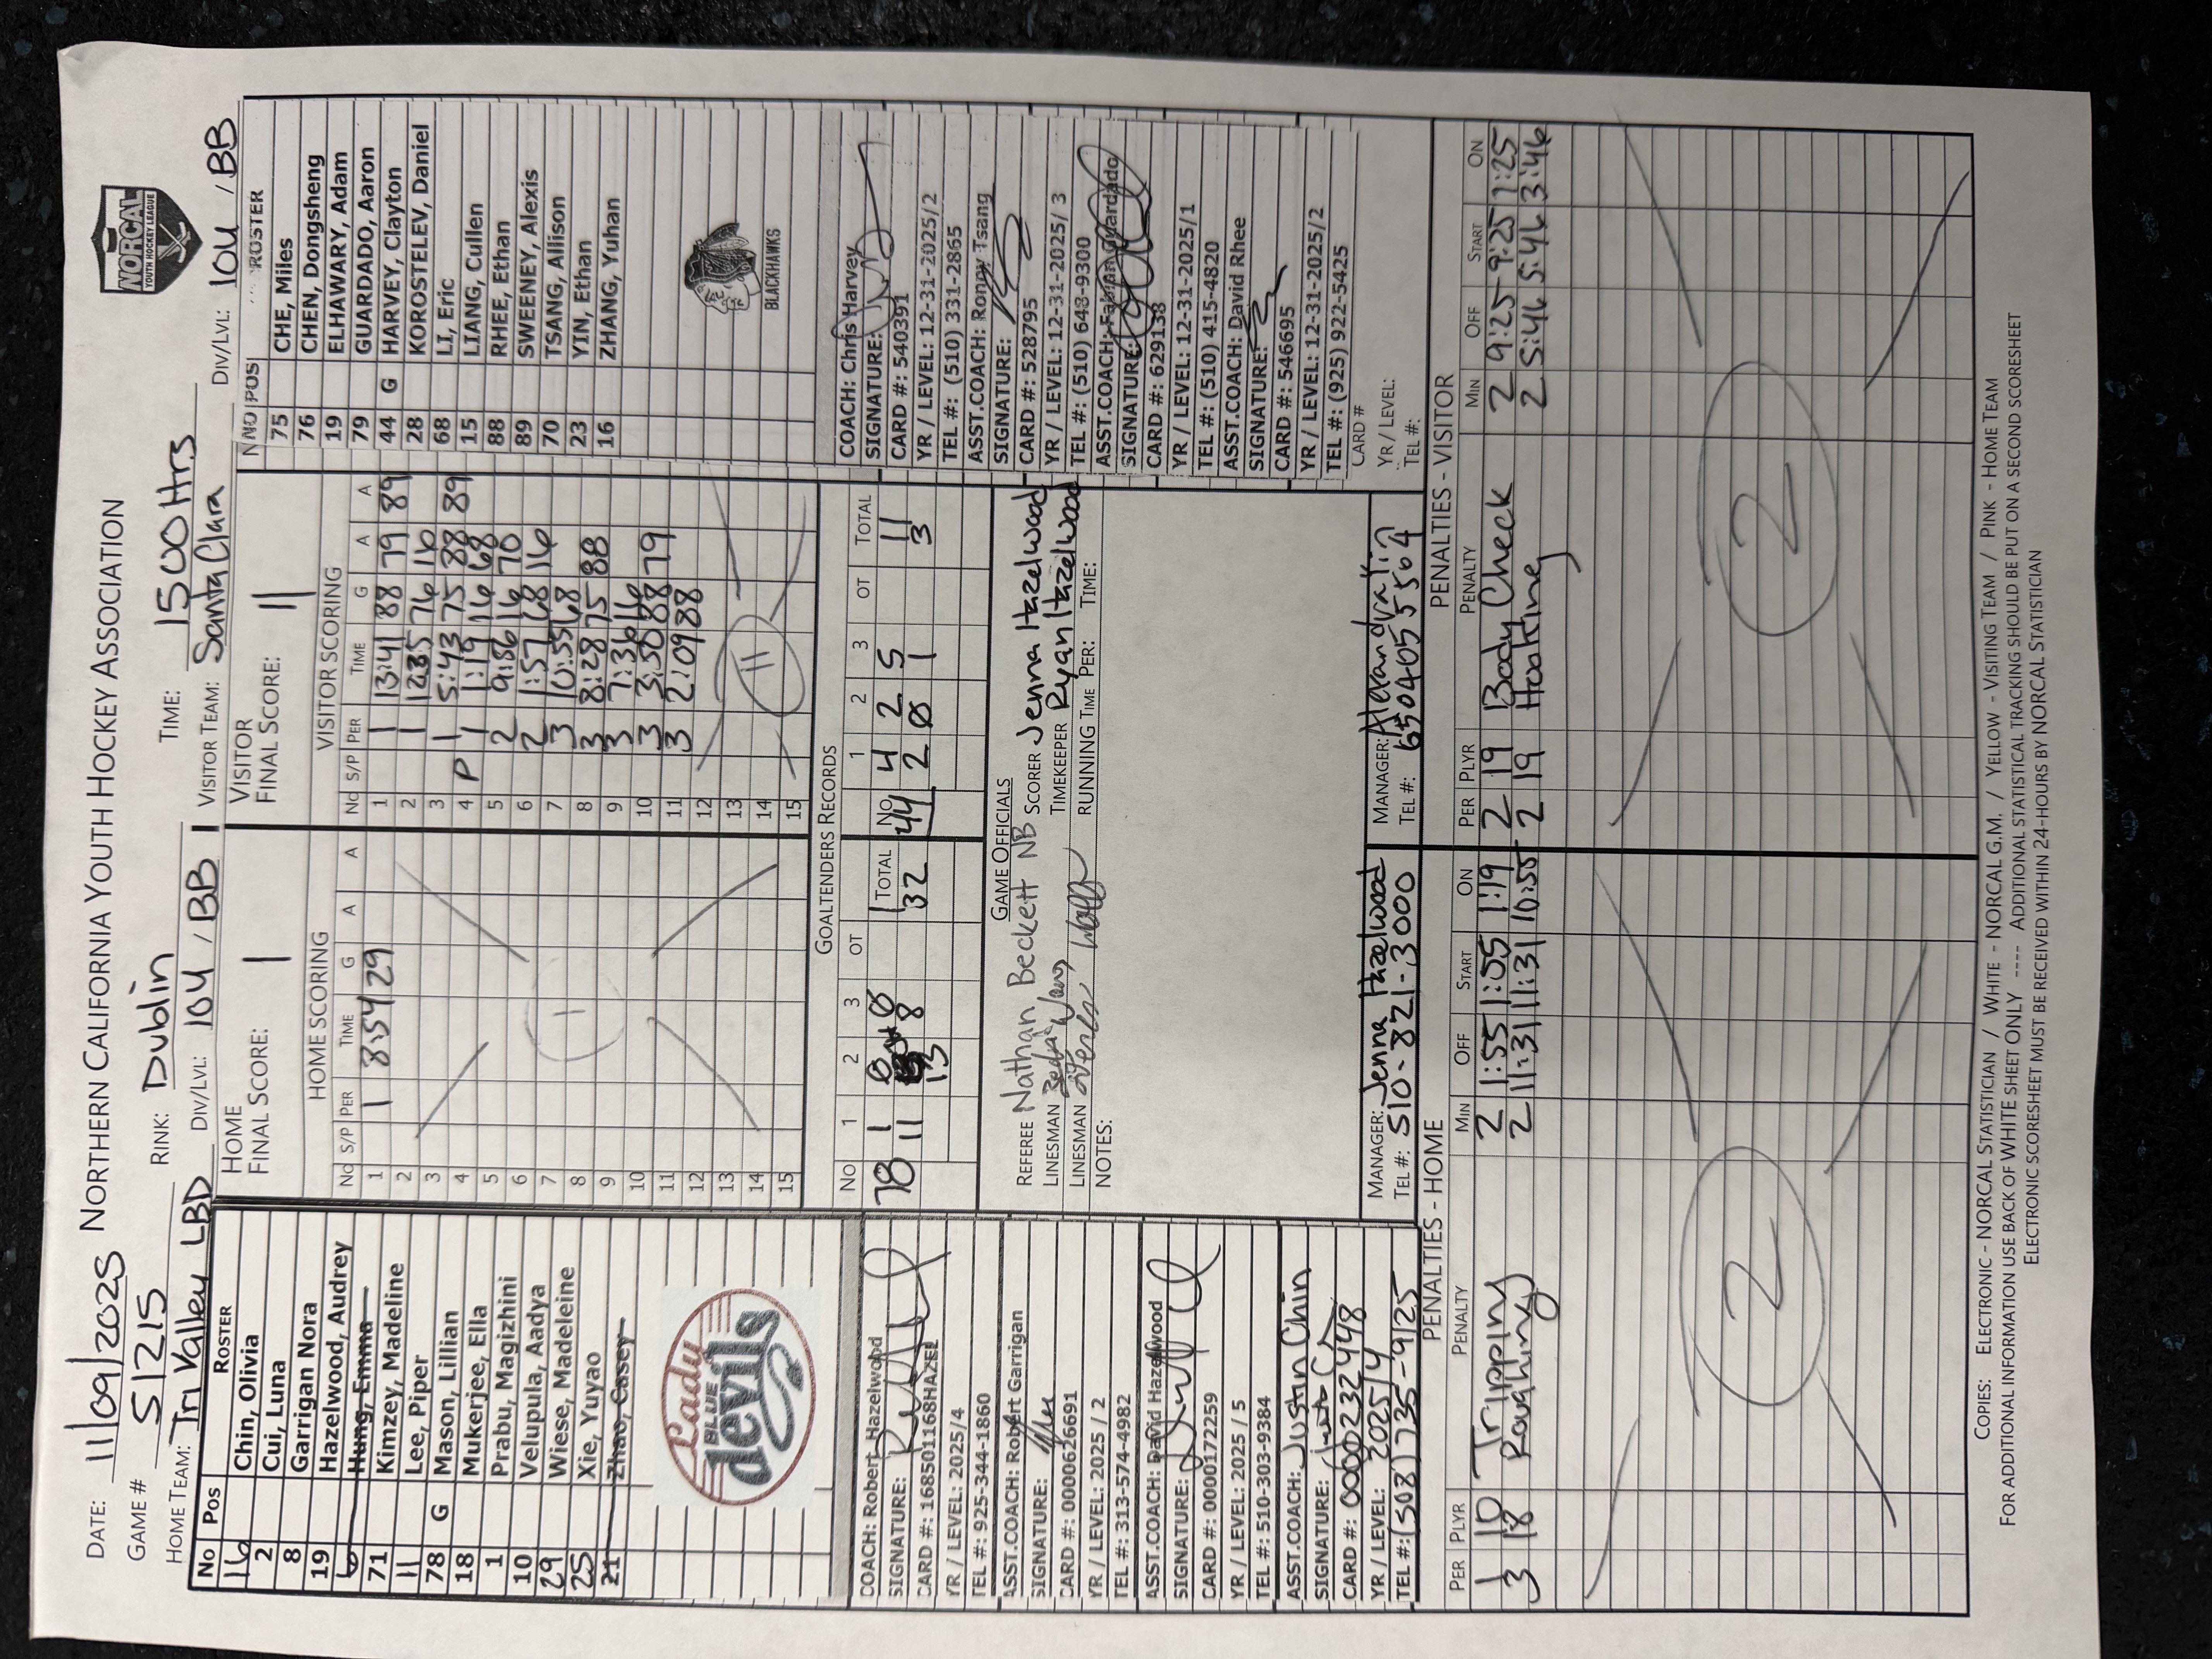 DATE: 11/09/2025 NORTHERN CALIFORNIA YOUTH HOCKEY ASSOCIATION
NORCAL
YOUTH HOCKEY LEAGUE
GAME # 51215 RINK: Dublin TIME: 1500 Hrs
HOME TEAM: Tri Valley LBD DIV/LVL: 10U / BB VISITOR TEAM: Santa Clara DIV/LVL: 10U / BB
No Pos ROSTER
16 Chin, Olivia
2 Cui, Luna
8 Garrigan Nora
19 Hazelwood, Audrey
6 Hung, Emma
71 Kimzey, Madeline
11 Lee, Piper
78 G Mason, Lillian
18 Mukerjee, Ella
1 Prabu, Magizhini
10 Velupula, Aadya
29 Wiese, Madeleine
25 Xie, Yuyao
21 Zhao, Casey
Lady
BLUE
devils
COACH: Robert Hazelwood
SIGNATURE:
CARD #: 168501168HAZEL
YR / LEVEL: 2025/4
TEL #: 925-344-1860
ASST.COACH: Robert Garrigan
SIGNATURE:
CARD #: 0000626691
YR / LEVEL: 2025 / 2
TEL #: 313-574-4982
ASST.COACH: David Hazelwood
SIGNATURE:
CARD #: 0000172259
YR / LEVEL: 2025 / 5
TEL #: 510-303-9384
ASST.COACH: Justin Chin
SIGNATURE:
CARD #: 0000232448
YR / LEVEL: 2025/4
TEL #: (508) 735-9125
HOME
FINAL SCORE: 1
HOME SCORING
No S/P PER TIME G A A
1 1 8:54 29
2
3
4
5
6
7
8
9
10
11
12
13
14
15
1
VISITOR
FINAL SCORE: 11
VISITOR SCORING
No S/P PER TIME G A A
1 1 13:41 88 79 89
2 1 12:35 76 16
3 1 5:43 75 88 89
4 P 1 1:19 16 68
5 2 9:56 16 70
6 2 1:57 68 16
7 3 10:55 68
8 3 8:28 75 88
9 3 7:36 16
10 3 3:50 88 79
11 3 2:09 88
12
13
14
15
11
GOALTENDERS RECORDS
No 1 2 3 OT TOTAL
78 1 0 0 1
11 13 8 32
No 1 2 3 OT TOTAL
44 4 2 5 11
2 0 1 3
GAME OFFICIALS
REFEREE Nathan Beckett NB SCORER Jenna Hazelwood
LINESMAN TIMEKEEPER Ryan Hazelwood
LINESMAN RUNNING TIME PER: TIME:
NOTES:
MANAGER: Jenna Hazelwood
TEL #: 510-821-3000
MANAGER: Alexandra Yin
TEL #: 650 405 5564
NO POS ROSTER
75 CHE, Miles
76 CHEN, Dongsheng
19 ELHAWARY, Adam
79 GUARDADO, Aaron
44 G HARVEY, Clayton
28 KOROSTELEV, Daniel
68 LI, Eric
15 LIANG, Cullen
88 RHEE, Ethan
89 SWEENEY, Alexis
70 TSANG, Allison
23 YIN, Ethan
16 ZHANG, Yuhan
BLACKHAWKS
COACH: Chris Harvey
SIGNATURE:
CARD #: 540391
YR / LEVEL: 12-31-2025/2
TEL #: (510) 331-2865
ASST.COACH: Ronny Tsang
SIGNATURE:
CARD #: 528795
YR / LEVEL: 12-31-2025/ 3
TEL #: (510) 648-9300
ASST.COACH: Fabian Guardado
SIGNATURE:
CARD #: 629138
YR / LEVEL: 12-31-2025/1
TEL #: (510) 415-4820
ASST.COACH: David Rhee
SIGNATURE:
CARD #: 546695
YR / LEVEL: 12-31-2025/2
TEL #: (925) 922-5425
CARD #
YR / LEVEL:
TEL #:
PENALTIES - HOME
PER PLYR PENALTY MIN OFF START ON
1 10 Tripping 2 1:55 1:55 1:19
3 18 Roughing 2 11:31 11:31 10:55
2
PENALTIES - VISITOR
PER PLYR PENALTY MIN OFF START ON
2 19 Body Check 2 9:25 9:25 7:25
2 19 Hooking 2 5:46 5:46 3:46
2
COPIES: ELECTRONIC - NORCAL STATISTICIAN / WHITE - NORCAL G.M. / YELLOW - VISITING TEAM / PINK - HOME TEAM
FOR ADDITIONAL INFORMATION USE BACK OF WHITE SHEET ONLY ---- ADDITIONAL STATISTICAL TRACKING SHOULD BE PUT ON A SECOND SCORESHEET
ELECTRONIC SCORESHEET MUST BE RECEIVED WITHIN 24-HOURS BY NORCAL STATISTICIAN